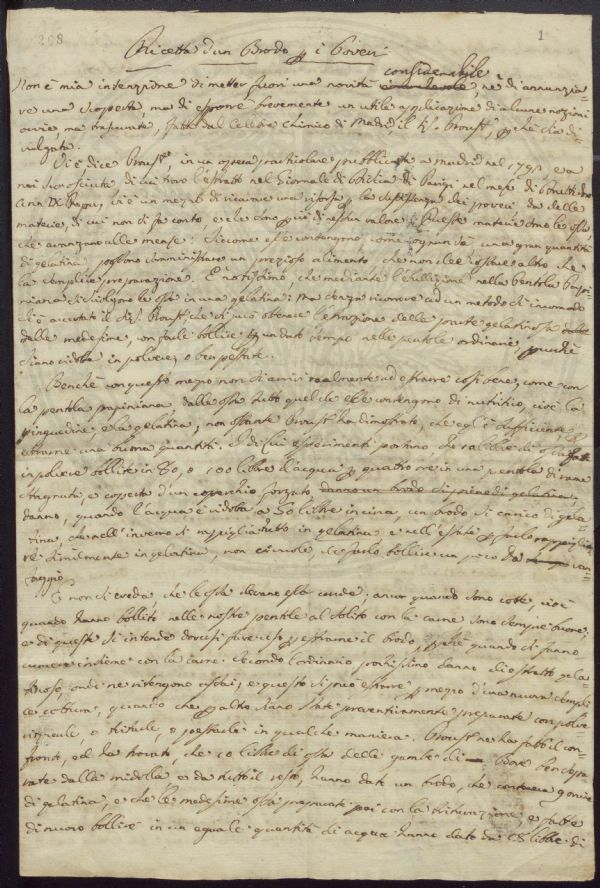 208 1
Ricetta d'un Brodo p i Poveri
considerabile
Non è mia intenzione di metter fuori una novità nè di annunzia=
re una scoperta, ma di esporre brevemente un utile applicazione di alcune nozioni
ovvie, ma trascurate, fatta dal celebre Chimico di Madrid il Proust, che di=
vulgato.
Vi è dice Proust, in un opera particolare pubblicata a Madrid nel 1791 e a
noi sconosciuta di cui trovo l'estratto nel Giornale di Fisica di Parigi nel mese di
vi è un mezzo di ricavare una risorsa p la sussistenza dei poveri da delle
materie, di cui non si fa conto e che sono quasi di nessun valore. Queste materie sono le ossa
che avanzano alle mense: siccome esse contengono, come ognun sà una gran quantità
di gelatina, possono somministrare un prezioso alimento che non dee costare altro che
la semplice preparazione. È notissimo, che mediante l'ebullizione nella Pentola Papi=
niana si sciolgono le ossa in una gelatina: ma senza ricorrere ad un metodo sì incomodo
si è accertato il Proust che si può ottenere l'estrazione della parte gelatinosa
dalle medesime, con farle bollire p un dato tempo nelle pentole ordinarie, purchè
siano ridotte in polvere, o ben pestate.
Benchè con questo mezzo non si arrivi realmente ad estrarre così bene, come con
la pentola papiniana, dalle ossa tutto quel che esse contengono di nutritivo, cioè la
pinguedine, e la gelatina, non ostante Proust ha dimostrato, che egli è sufficiente p
estrarne una buona quantità. I di lui esperimenti portano, che 10 libbre di ossa fatte
in polvere bollite in 80, o 100 libbre d'acqua p quattro ore in una pentola di rame
stagnata e coperta d'un coperchio forzato
danno, quando l'acqua è ridotta a 50 libbre in circa, un brodo sì carico di gela=
tina, che nell'inverno si rappiglia tutto in gelatina e nell'estate p farlo rappiglia=
re similmente in gelatina, non ci vuole, che farlo bollire un poco da van=
taggio.
E non si creda, che le ossa devano esser crude: ancor quando sono cotte, cioè
quando hanno bollito nelle nostre pentole al solito con la carne sono sempre buone,
e di queste s'intende doversi servirsi p estrarne il brodo, p chè quando si fanno
cuocere insieme con la carne secondo l'ordinario pochissimo danno di estratto gela=
tinoso, onde ne ritengono assai, e questo si può estrarre p mezzo d'una nuova sempli=
ce cottura, quando che p altro siano state preventivamente preparate con polve=
rizzarle, o tritarle, o pestarle in qualche maniera. Proust ne ha fatto il con=
fronto, ed ha trovato, che 10 libbre di ossa delle gambe di Bove ben
rate dalla midolla e da tutto il resto, hanno dato un brodo, che conteneva 9 oncie
di gelatina, e che le medesime ossa preparate poi con la triturazione, e fatte
di nuovo bollire in un eguale quantità di acqua hanno dato da 28 libbre di